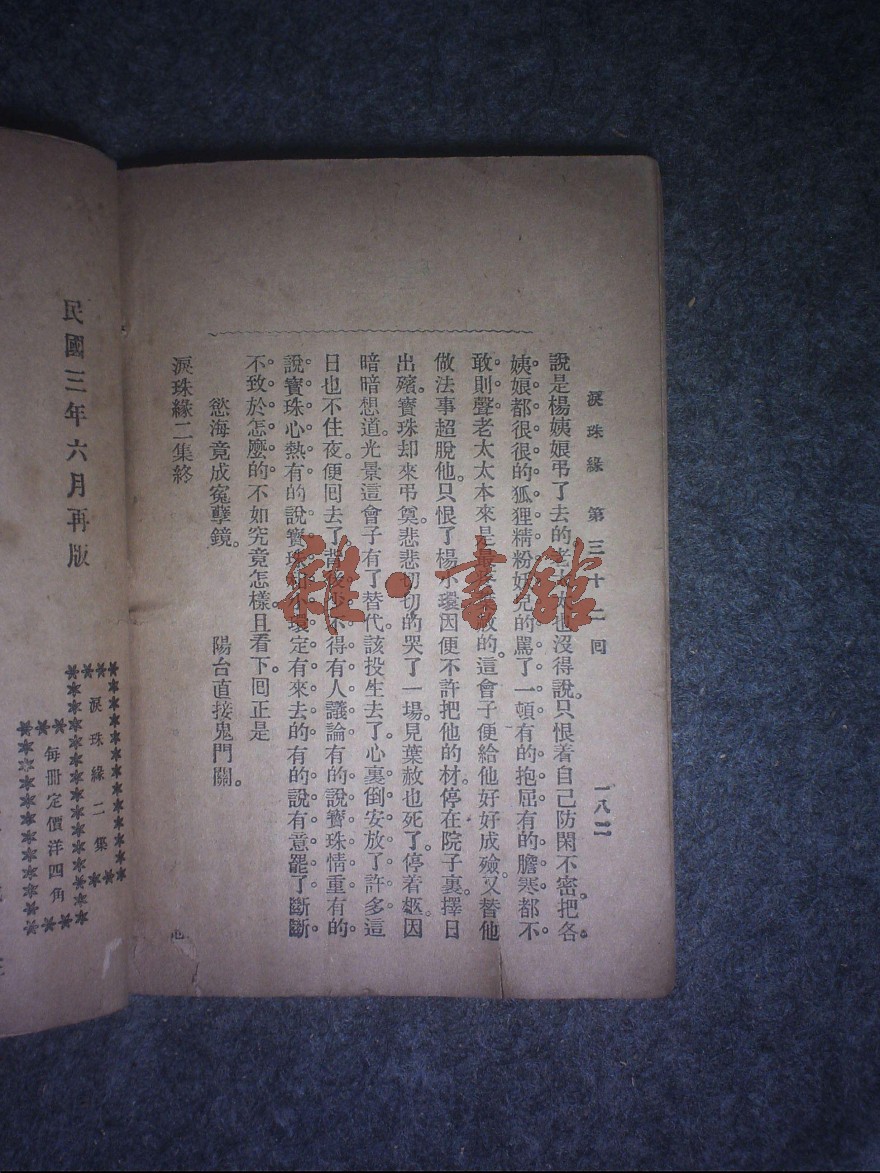 淚珠緣 第三十二回 一八二
說是楊姨娘弔了去的老太太也沒得說。只恨着自己防閑不密。把各
姨娘都很很的狐狸精粉奸兒的罵了一頓有的抱屈有的膽寒都不
敢則聲老太太本來是最慈的。這會子便給他好好成殮。又替他
做法事超脫他。只恨了楊小環因便不許把他的材。停在院子裏。擇日
出殯。寶珠却來弔奠。悲悲切切的哭了一場。見葉赦也死了。停着柩。因
暗暗想道。光景這會子有了替代。該投生去了。心裏倒安放了許多這
日也不住夜。便囘去了背後少不得有人議論有的說寶珠情重有的
說寶珠心熱有的說寶珠和小環定有來去的有的說有意罷了斷斷
不致於怎麼的不如究竟怎樣。且看下囘正是
慾海竟成寃孽鏡。 陽台直接鬼門關。
淚珠緣二集終
民國三年六月再版
淚珠緣二集
每冊定價洋四角
稚·書館